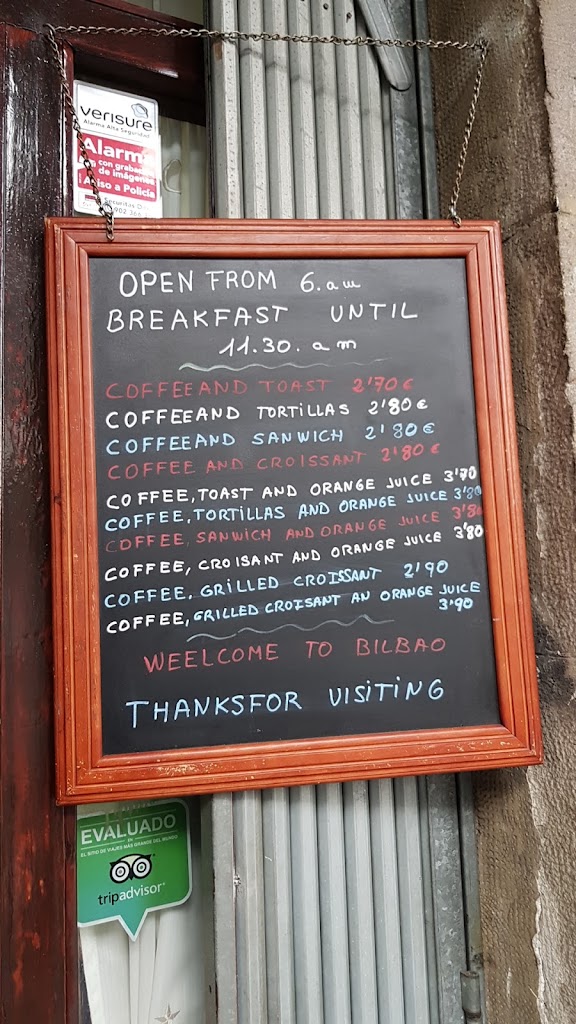 verisure
Alarma Alta Seguridad
Alarma
con grabación
de imágenes
Aviso a Policía
Securitas D
902 366
OPEN FROM 6.am
BREAKFAST UNTIL
11.30. am
COFFEE AND TOAST 2'70 €
COFFEE AND TORTILLAS 2'80 €
COFFEE AND SANWICH 2'80 €
COFFEE AND CROISSANT 2'80 €
COFFEE, TOAST AND ORANGE JUICE 3'70
COFFEE, TORTILLAS AND ORANGE JUICE 3'80
COFFEE, SANWICH AND ORANGE JUICE 3'80
COFFEE, CROISANT AND ORANGE JUICE 3'80
COFFEE, GRILLED CROISSANT 2'90
COFFEE, GRILLED CROISANT AN ORANGE JUICE
3'90
WEELCOME TO BILBAO
THANKSFOR VISITING
EVALUADO
EN
EL SITIO DE VIAJES MÁS GRANDE DEL MUNDO
tripadvisor